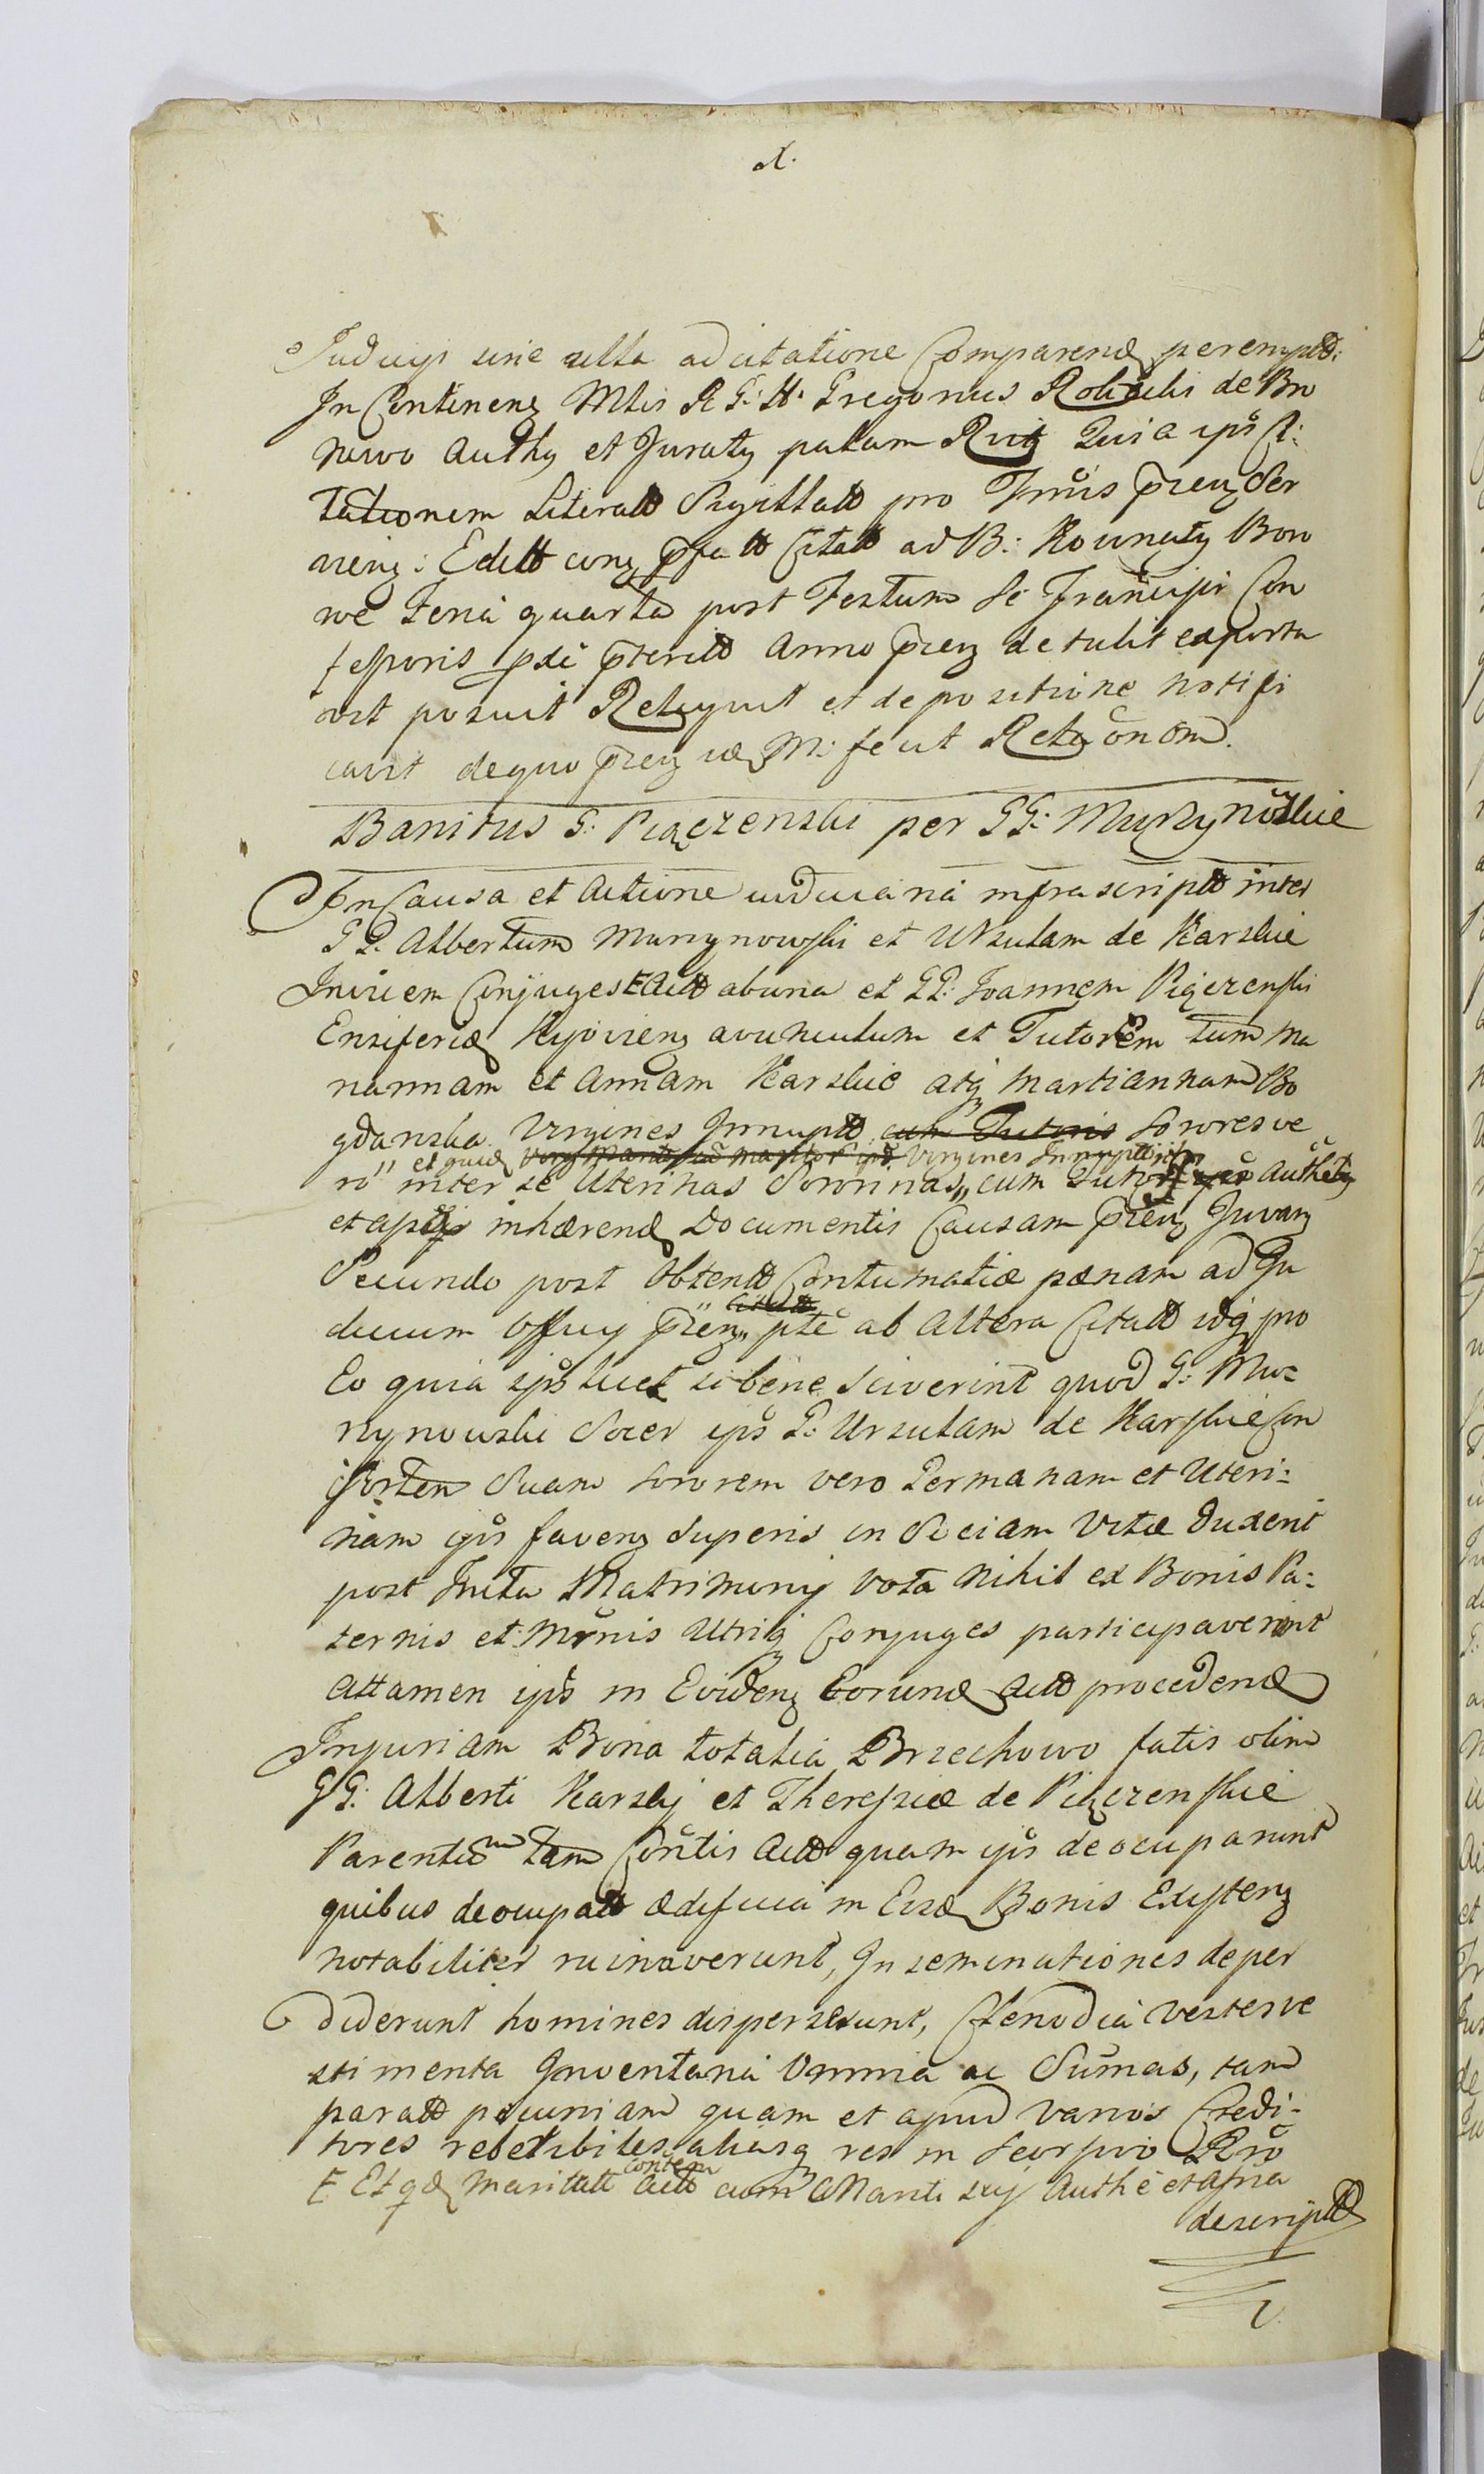 Judicij sine ulla ad citatione Comparend peremptt:
In Continenz Mltis R G: H: Gregorius Robaski de Bro
newo Auth9 et Juratz palam Rvit Quia ips Ci:
tationem Literatt Sigillatt pro Trmis pnz Ser
vienz: Editt conz pfatt Citatt ad B: Kownaty Boro
we Feria quarta post Festum Sti Francisci Con
fessoris pdi pteritt Anno pnz detulit exporta
vit posuit Reliquit et de positione notifi
cavit de quo pnz id M: fecit Relaonem
Banitus G: Pigczenski per GG: Murzynowskie
In Causa et Actione judiciaria infrascriptt inter
GG. Albertum Murzynowski et Ursulam de Karskie
Invicem Conjuges E Actt ab una et GG: Joannem Pigczenski
Ensiferid Kijovienz avunculum et Tutorem tum Ma
riannam et Annam Karskie atq Martiannam Bo
gdanska Virgines Innuptt cum Tutoris Sorores ve
et quid Virgines Innuptt
ro inter se Uterinas Sororinas,, cum Tutor ips Authtz
et apsi inhærend Documentis Causam pnz Juvanz
Secundo post Obtentt Contumatiæ pænam ad Ju
Citatt
dicium Officij pnz,, pte ab Altera Citatt idq pro
Eo quia ips licet si bene sciverint quod G: Mur:
zynowski Socer ips G: Ursulam de Karskie Con
sortem Suam Sororem vero Germanam et Uteri:
nam ips favenz Superis in Sociam Vitæ duxerit
post Inita Matrimonij Vota Nihil ex Bonis Pa:
ternis et Mrnis Utriq Conjuges participaverint
Attamen ips in Evidenz Eorund Actt procedend
Injuriam Bona totalia Brzechowo fatis olim
GG: Alberti Karskij et Theresiæ de Pigczenskie
Parentum tam Contis Actt quam ips deocuparunt
quibus deocupatt ædificia in Eisd Bonis Existenz
notabiliter ruinaverunt, In seminationes deper
diderunt homines dispersesunt, Clenodia vestes ve
stimenta Inventaria Omnia ac Sumas, tam
paratt pecuniam quam et apud varios Credi:
tores receptibiles aliasq res in Seorsivo Rro
contem
E Et qd Maritatt Actt cum Mariti sui Authe et Assria
descriptt